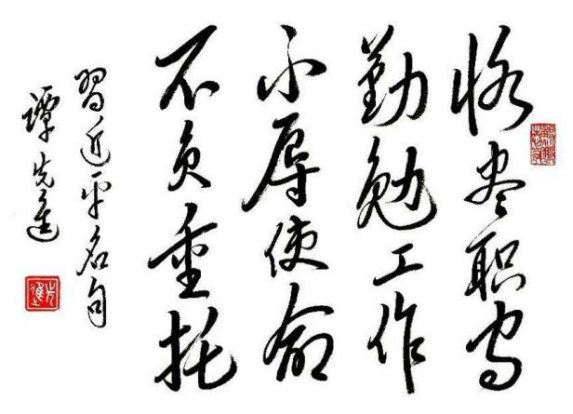 恪尽职守
勤勉工作
不辱使命
不负重托
習近平名句
谭先進